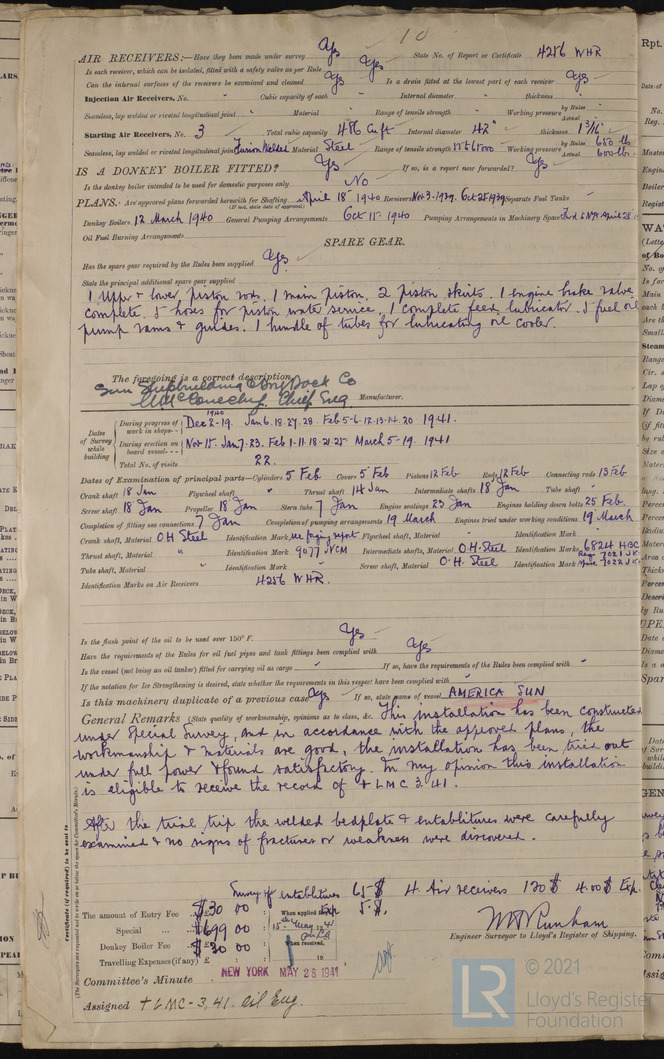 10
AIR RECEIVERS:—Have they been made under survey Yes State No. of Report or Certificate 4256 WHR
Is each receiver, which can be isolated, fitted with a safety valve as per Rule Yes
Can the internal surfaces of the receivers be examined and cleaned Yes Is a drain fitted at the lowest part of each receiver Yes
Injection Air Receivers, No. Cubic capacity of each Internal diameter thickness
Seamless, lap welded or riveted longitudinal joint Material Range of tensile strength Working pressure by Rules Actual
Starting Air Receivers, No. 3 Total cubic capacity Cu ft Internal diameter 42" thickness 1 3/16"
Seamless, lap welded or riveted longitudinal joint Fusion Welded Material Steel Range of tensile strength Working pressure by Rules 650 lbs Actual 600 lbs
IS A DONKEY BOILER FITTED? Yes If so, is a report now forwarded? Yes
Is the donkey boiler intended to be used for domestic purposes only No
PLANS. Are approved plans forwarded herewith for Shafting April 18 1940 Receivers Nov. 3. 1939. Oct 25 1939 Separate Fuel Tanks
(If not, state date of approval)
Donkey Boilers 12 March 1940 General Pumping Arrangements Oct 11 1940 Pumping Arrangements in Machinery Space
Oil Fuel Burning Arrangements
SPARE GEAR.
Has the spare gear required by the Rules been supplied Yes
State the principal additional spare gear supplied
1 Upper & lower piston rods, 1 main piston, 2 piston skirts. 1 engine brake valve
complete. 5 hoses for piston water service. 1 complete feed lubricator. 5 fuel oil
pump rams & guides. 1 bundle of tubes for lubricating oil cooler.
The foregoing is a correct description,
Sun Shipbuilding & Dry Dock Co
Chief Eng Manufacturer.
Dates of Survey while building
During progress of work in shops-- 1940 Dec 2-19. Jan 6.18.27.28. Feb 5-6.12.13.14.20 1941.
During erection on board vessel--- Nov 15. Jan 7.23. Feb 1-11.18.21.25 March 5-19. 1941
Total No. of visits 22.
Dates of Examination of principal parts—Cylinders 5 Feb Covers 5 Feb Pistons 12 Feb Rods 12 Feb Connecting rods 13 Feb
Crank shaft 18 Jan Flywheel shaft " Thrust shaft 14 Jan Intermediate shafts 18 Jan Tube shaft
Screw shaft 18 Jan Propeller 18 Jan Stern tube 7 Jan Engine seatings 23 Jan Engines holding down bolts 25 Feb.
Completion of fitting sea connections 7 Jan Completion of pumping arrangements 19 March Engines tried under working conditions 19 March
Crank shaft, Material OH Steel Identification Mark, see forging report Flywheel shaft, Material Identification Mark
Thrust shaft, Material " Identification Mark 9077 NCM Intermediate shafts, Material O.H. Steel Identification Marks 6824 HBC
Tube shaft, Material " Identification Mark Screw shaft, Material O.H. Steel Identification Mark 7022 JK
Identification Marks on Air Receivers 4256 WHR.
Is the flash point of the oil to be used over 150° F. Yes
Have the requirements of the Rules for oil fuel pipes and tank fittings been complied with Yes
Is the vessel (not being an oil tanker) fitted for carrying oil as cargo If so, have the requirements of the Rules been complied with
If the notation for Ice Strengthening is desired, state whether the requirements in this respect have been complied with
Is this machinery duplicate of a previous case Yes If so, state name of vessel AMERICA SUN
General Remarks (State quality of workmanship, opinions as to class, &c. This installation has been constructed
under Special Survey, and in accordance with the approved plans, the
workmanship & materials are good, the installation has been tried out
under full power & found satisfactory. In my opinion this installation
is eligible to receive the record of + LMC 3.41.
After the trial trip the welded bedplate & entablitures were carefully
examined & no signs of fractures or weakness were discovered.
Survey of entablitures 65 $ 4 Air receivers 120 $ 4.00 $ Exp.
The amount of Entry Fee $30 00 When applied for Exp 5. $.
Special $699 00 15th May 1941
Donkey Boiler Fee $30 00 When received,
Travelling Expenses (if any) £ 19
Engineer Surveyor to Lloyd's Register of Shipping.
Committee's Minute NEW YORK MAY 28 1941
Assigned + LMC-3,41. Oil Eng.
Certificate (if required) to be sent to
(The Surveyors are requested not to write on or below the space for Committee's Minute.)
© 2021
Lloyd's Register
Foundation